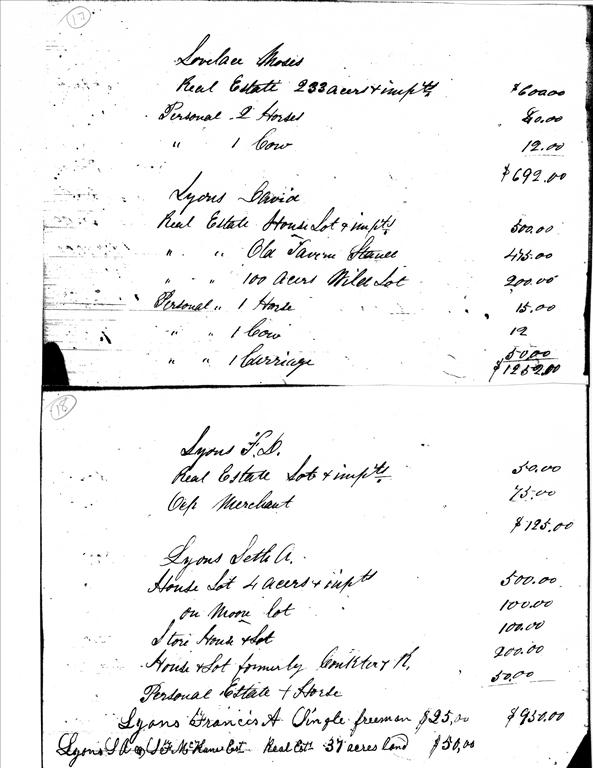 17
Lovelace Moses
Real Estate 233 acers & impts $600.00
Personal 2 Horses 80.00
" 1 Cow 12.00
$692.00
Lyons David
Real Estate House Lot & impts 500.00
" " Old Tavern Stand 475.00
" " 100 Acers Wild Lot 200.00
Personal " 1 Horse 15.00
" " 1 Cow 12
" " 1 Carriage 50.00
$1252.00
18
Lyons F. D.
Real Estate Lot & impts 50.00
Ocp Merchant 75.00
$125.00
Lyons Seth A.
House Lot 4 acers & impts 500.00
on Moon lot 100.00
Store House & Lot 100.00
House & Lot formerly & K. 200.00
Personal Estate 1 Horse 50.00
Lyons Francis A Single freeman $25,00 $950.00
Lyons S A & S F McKane Est. Real Est 37 acres land $50,00